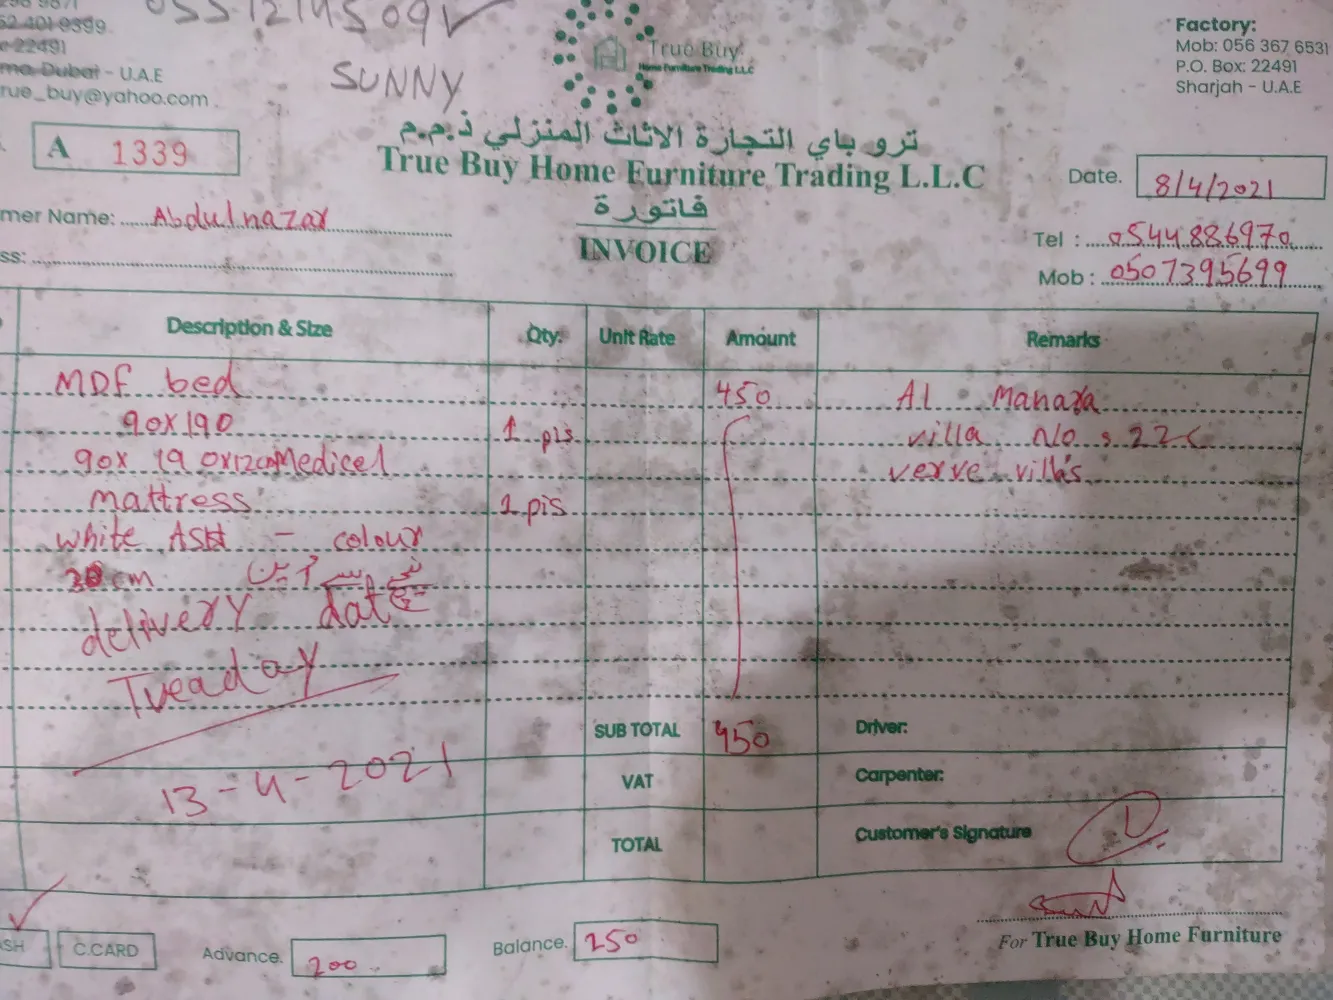 0551214509
SUNNY
52 401 9399
22491
Dubai - U.A.E
rue_buy@yahoo.com
True Buy
Home Furniture Trading L.L.C
Factory:
Mob: 056 367 6531
P.O. Box: 22491
Sharjah - U.A.E
A 1339
ترو باي التجارة الاثاث المنزلي ذ.م.م
True Buy Home Furniture Trading L.L.C
فاتورة
INVOICE
Date. 8/4/2021
mer Name: Abdulnazar
Tel : 0544886970
ss:
Mob : 0507395699
Description & Size Qty. Unit Rate Amount Remarks
MDF bed 450 Al Manara
90x190 1 pis villa No : 22C
90x190x12cm Medicel verve villa's
mattress 1 pis
white ASH - colour
cm
delivery date
Tueaday
13-4-2021
SUB TOTAL 450 Driver:
VAT Carpenter:
TOTAL Customer's Signature
SH C.CARD Advance. 200 Balance. 250
For True Buy Home Furniture